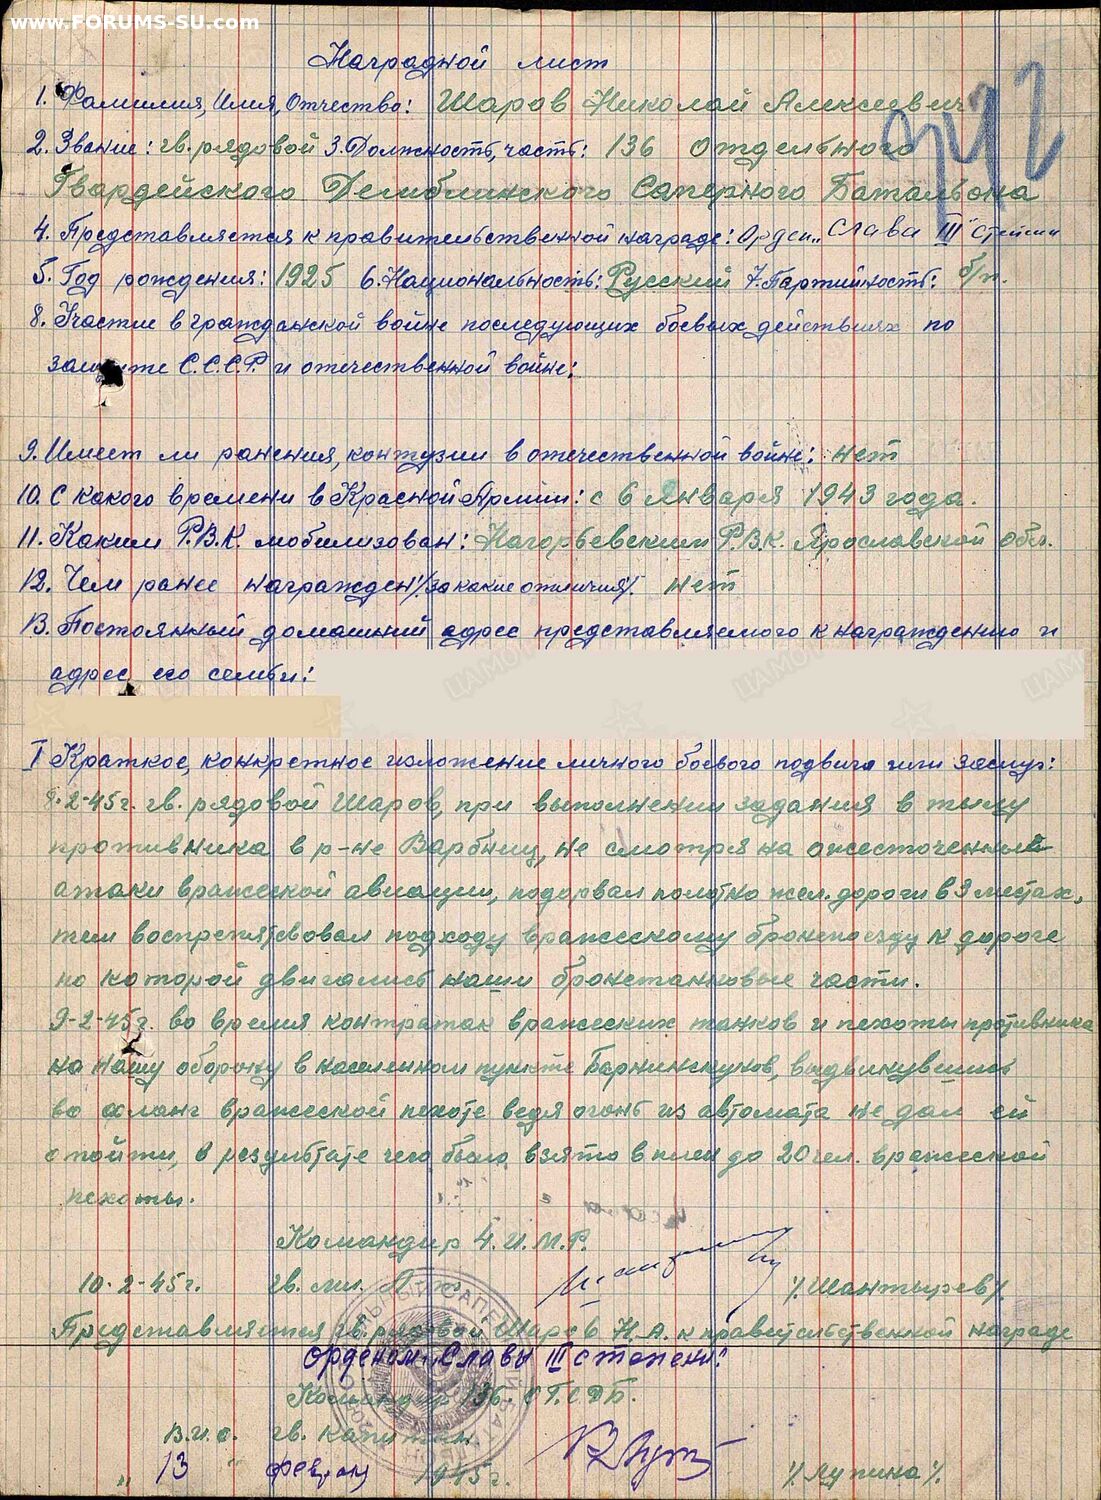 www.FORUMS-SU.com
Наградной лист
1. Фамилия, Имя, Отчество: Шаров Николай Алексеевич
2. Звание: гв. рядовой 3. Должность, часть: 136 Отдельного
Гвардейского Демблинского Саперного Батальона
4. Представляется к правительственной награде: Орден „Слава III" степени
5. Год рождения: 1925 6. Национальность: Русский 7. Партийность: б/п.
8. Участие в гражданской войне последующих боевых действиях по
защите С.С.С.Р. и отечественной войне:
9. Имеет ли ранения, контузии в отечественной войне: нет
10. С какого времени в Красной Армии: с 6 января 1943 года.
11. Каким Р.В.К. мобилизован: Нагорьевским Р.В.К. Ярославской обл.
12. Чем ранее награжден /за какие отличия/. нет
13. Постоянный домашний адрес представляемого к награждению и
адрес его семьи:
I Краткое, конкретное изложение личного боевого подвига или заслуг:
8-2-45г. гв. рядовой Шаров, при выполнении задания в тылу
противника в р-не Варбниц, не смотря на ожесточенный
атаки вражеской авиации, подорвал полотно жел. дороги в 3 местах,
тем воспрепятсвовал подходу вражескому бронепоезду к дороге
по которой двигались наши бронетанковые части.
9-2-45г. во время контратак вражеских танков и пехоты противника
на нашу оборону в населенном пункте выдвинувшись
во фланг вражеской пехоте ведя огонь из автомата не дал ей
отойти, в результате чего было взято в плен до 20 чел. вражеской
пехоты.
Командир 4. И.М.Р.
10-2-45г. гв. мл. л-т /Шантырев/.
Представляется гв. рядовой Шаров Н.А. к правительственной награде
орденом „Славы III степени".
Командир 136 О.Г.С.Д.Б.
В.и.о. гв. капитан
„13" феврал 1945г. /Лупина/.